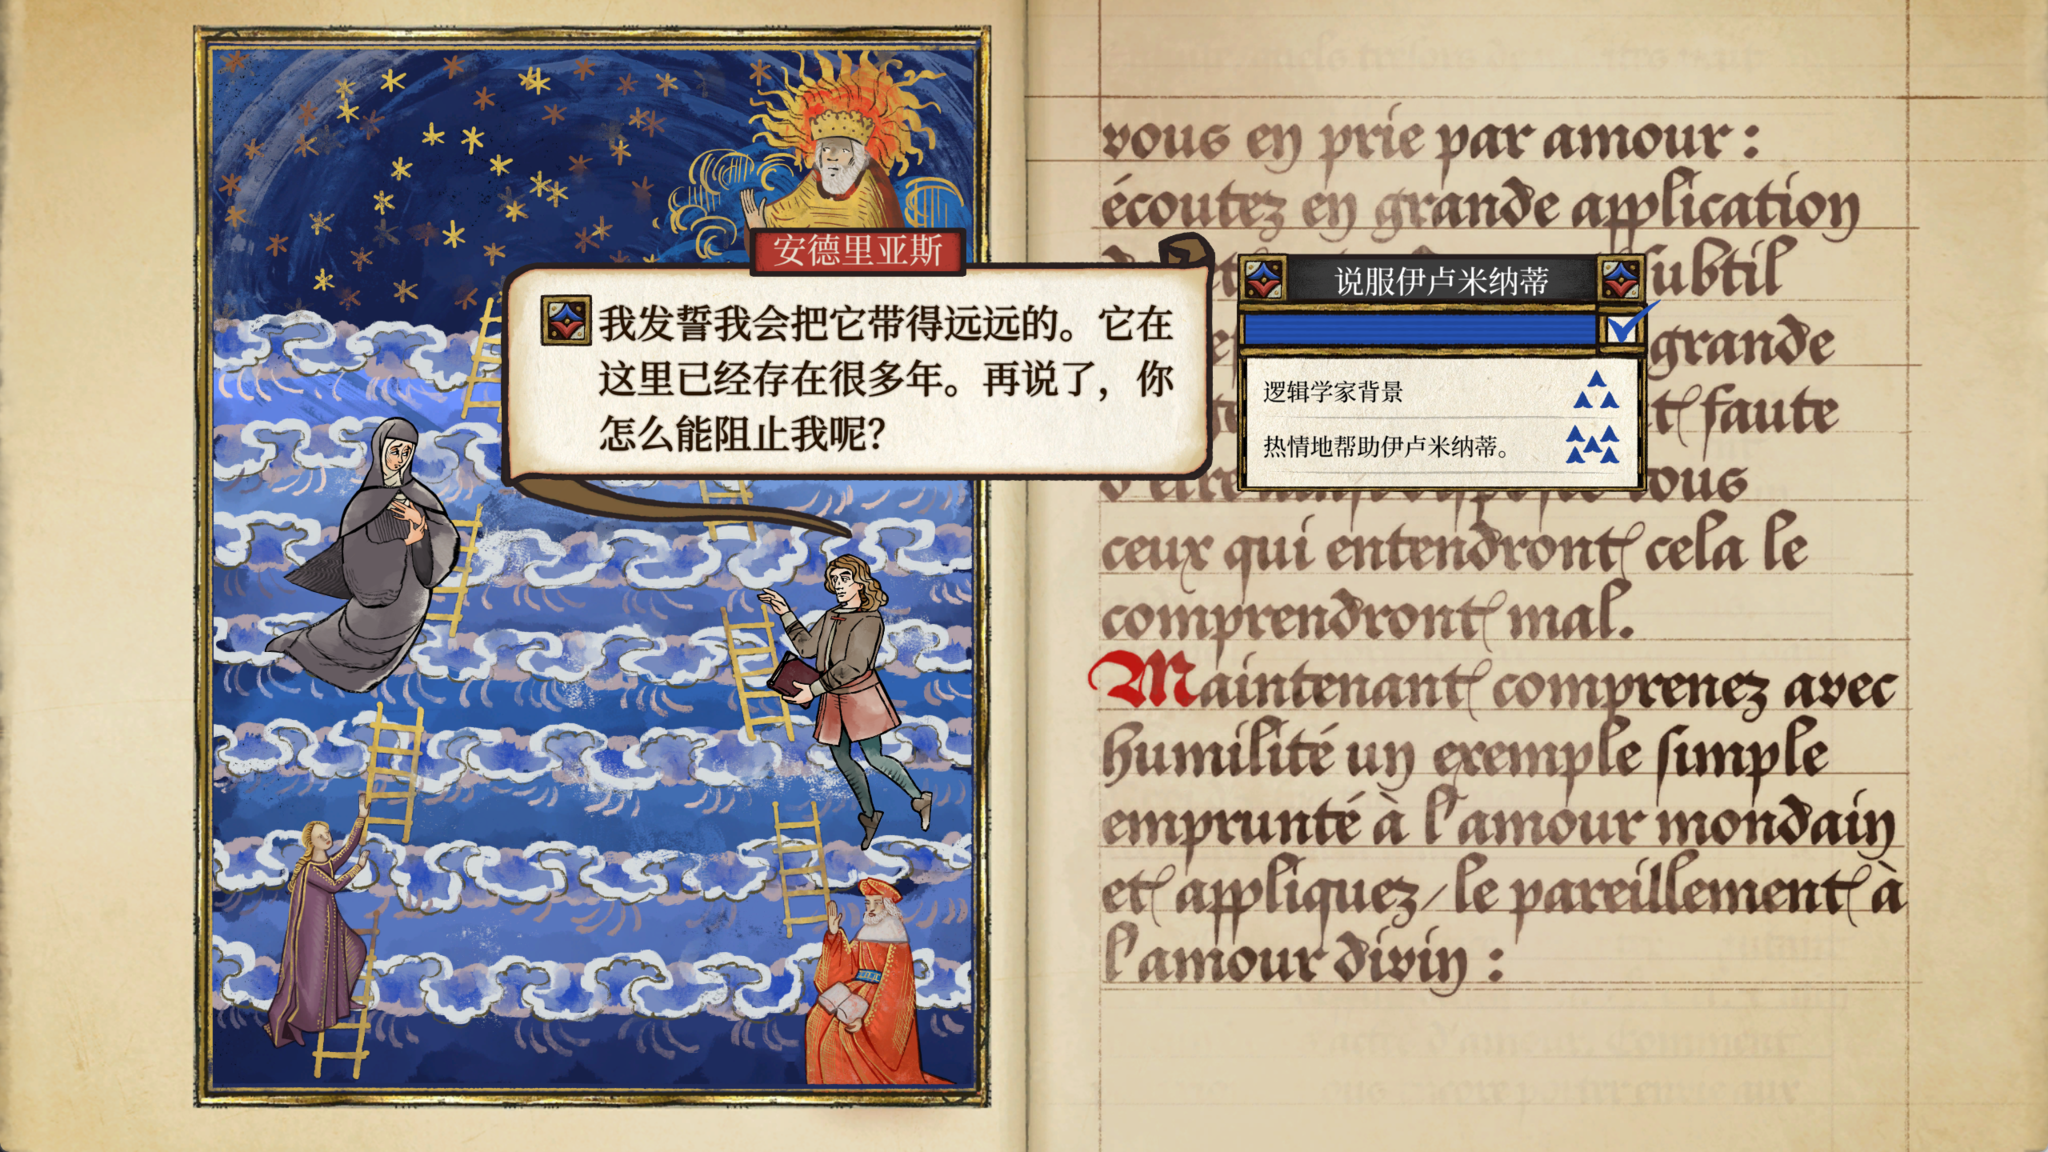 安德里亚斯
我发誓我会把它带得远远的。它在
这里已经存在很多年。再说了，你
怎么能阻止我呢？
说服伊卢米纳蒂
逻辑学家背景
热情地帮助伊卢米纳蒂。
vous en prie par amour :
écoutez en grande application
subtil
grande
faute
tous
ceux qui entendront cela le
comprendront mal.
Maintenant comprenez avec
humilité un exemple simple
emprunté à l'amour mondain
et appliquez-le pareillement à
l'amour divin :